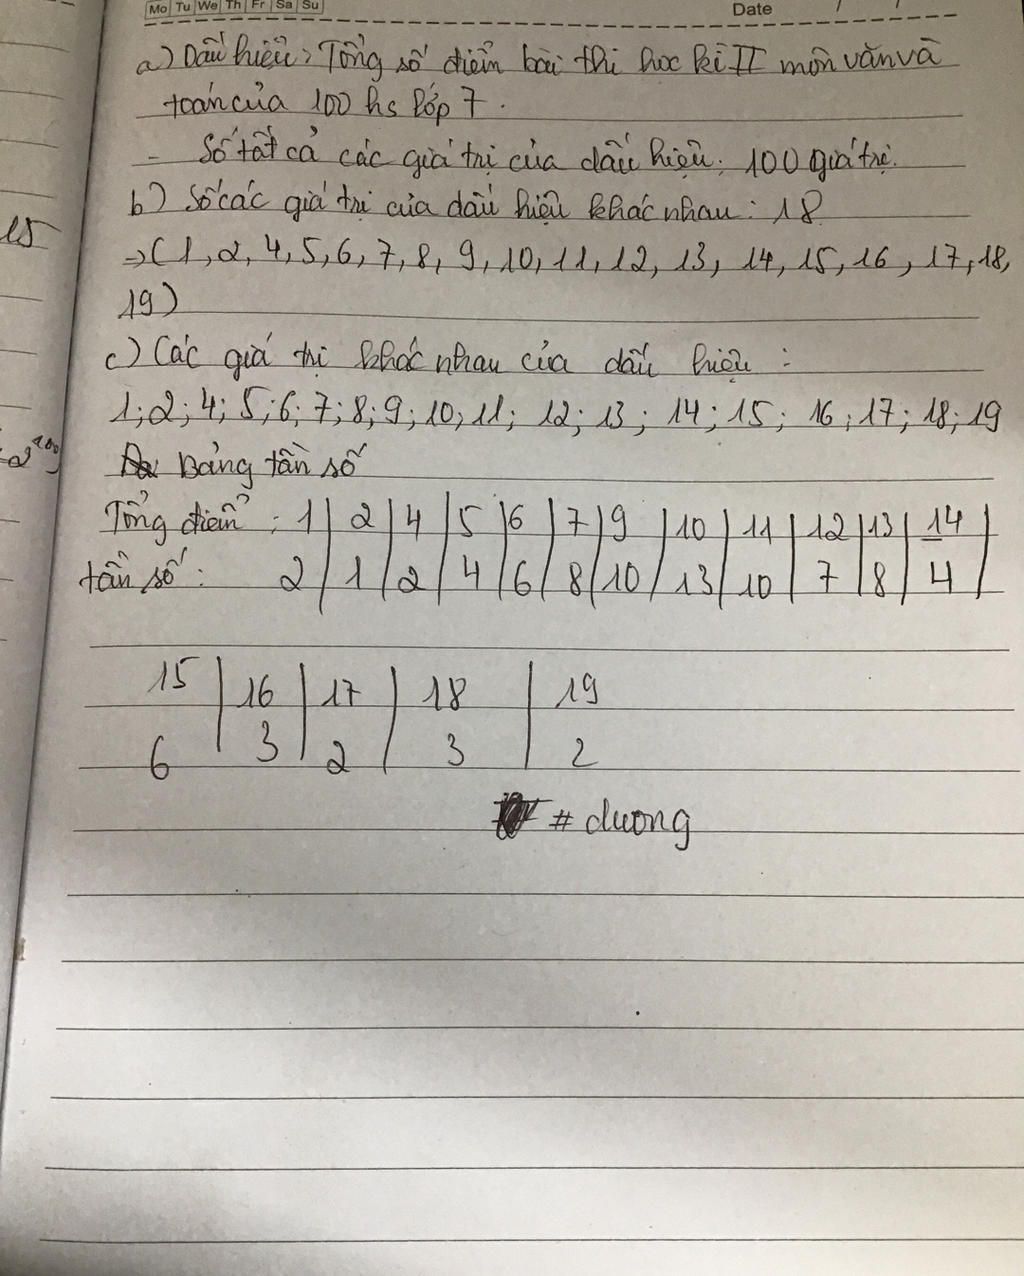 Mo Tu We Th Fr Sa Su
Date / /
a) Dấu hiệu: Tổng số điểm bài thi học kì II môn văn và
toán của 100 hs lớp 7.
- Số tất cả các giá trị của dấu hiệu: 100 giá trị.
b) Số các giá trị của dấu hiệu khác nhau: 18
15
→ (1, 2, 4, 5, 6, 7, 8, 9, 10, 11, 12, 13, 14, 15, 16, 17, 18,
19)
c) Các giá trị khác nhau của dấu hiệu:
1; 2; 4; 5; 6; 7; 8; 9; 10; 11; 12; 13; 14; 15; 16; 17; 18; 19
Bảng tần số
Tổng điểm: 1 | 2 | 4 | 5 | 6 | 7 | 9 | 10 | 11 | 12 | 13 | 14 |
tần số: 2 | 1 | 2 | 4 | 6 | 8 | 10 | 13 | 10 | 7 | 8 | 4 |
15 | 16 | 17 | 18 | 19
6 | 3 | 2 | 3 | 2
# duong